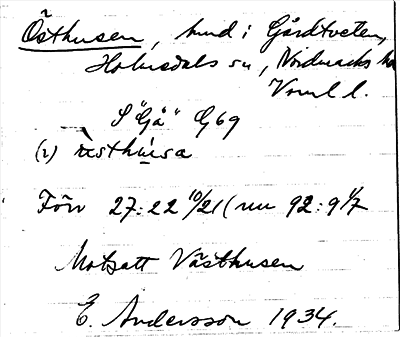 Östhusen, hmd i Gårdtveten,
Holmsdals sn, Nordmarks hd
Vrml l.
S "Gä" G69
(2) östhúsa
Förv 27:22 10/21 (nu 92:9 1/7
Motsatt Västhusen
E. Andersson 1934.